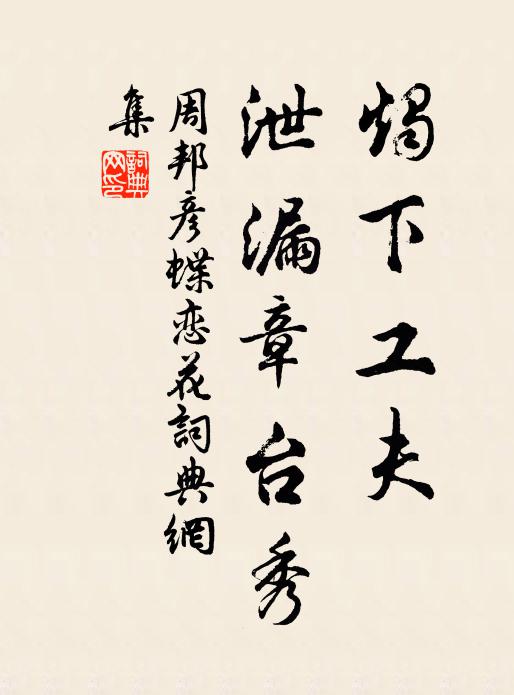 燭下工夫
泄漏章台秀
周邦彦蝶恋花詞典網
集
詞典
网印